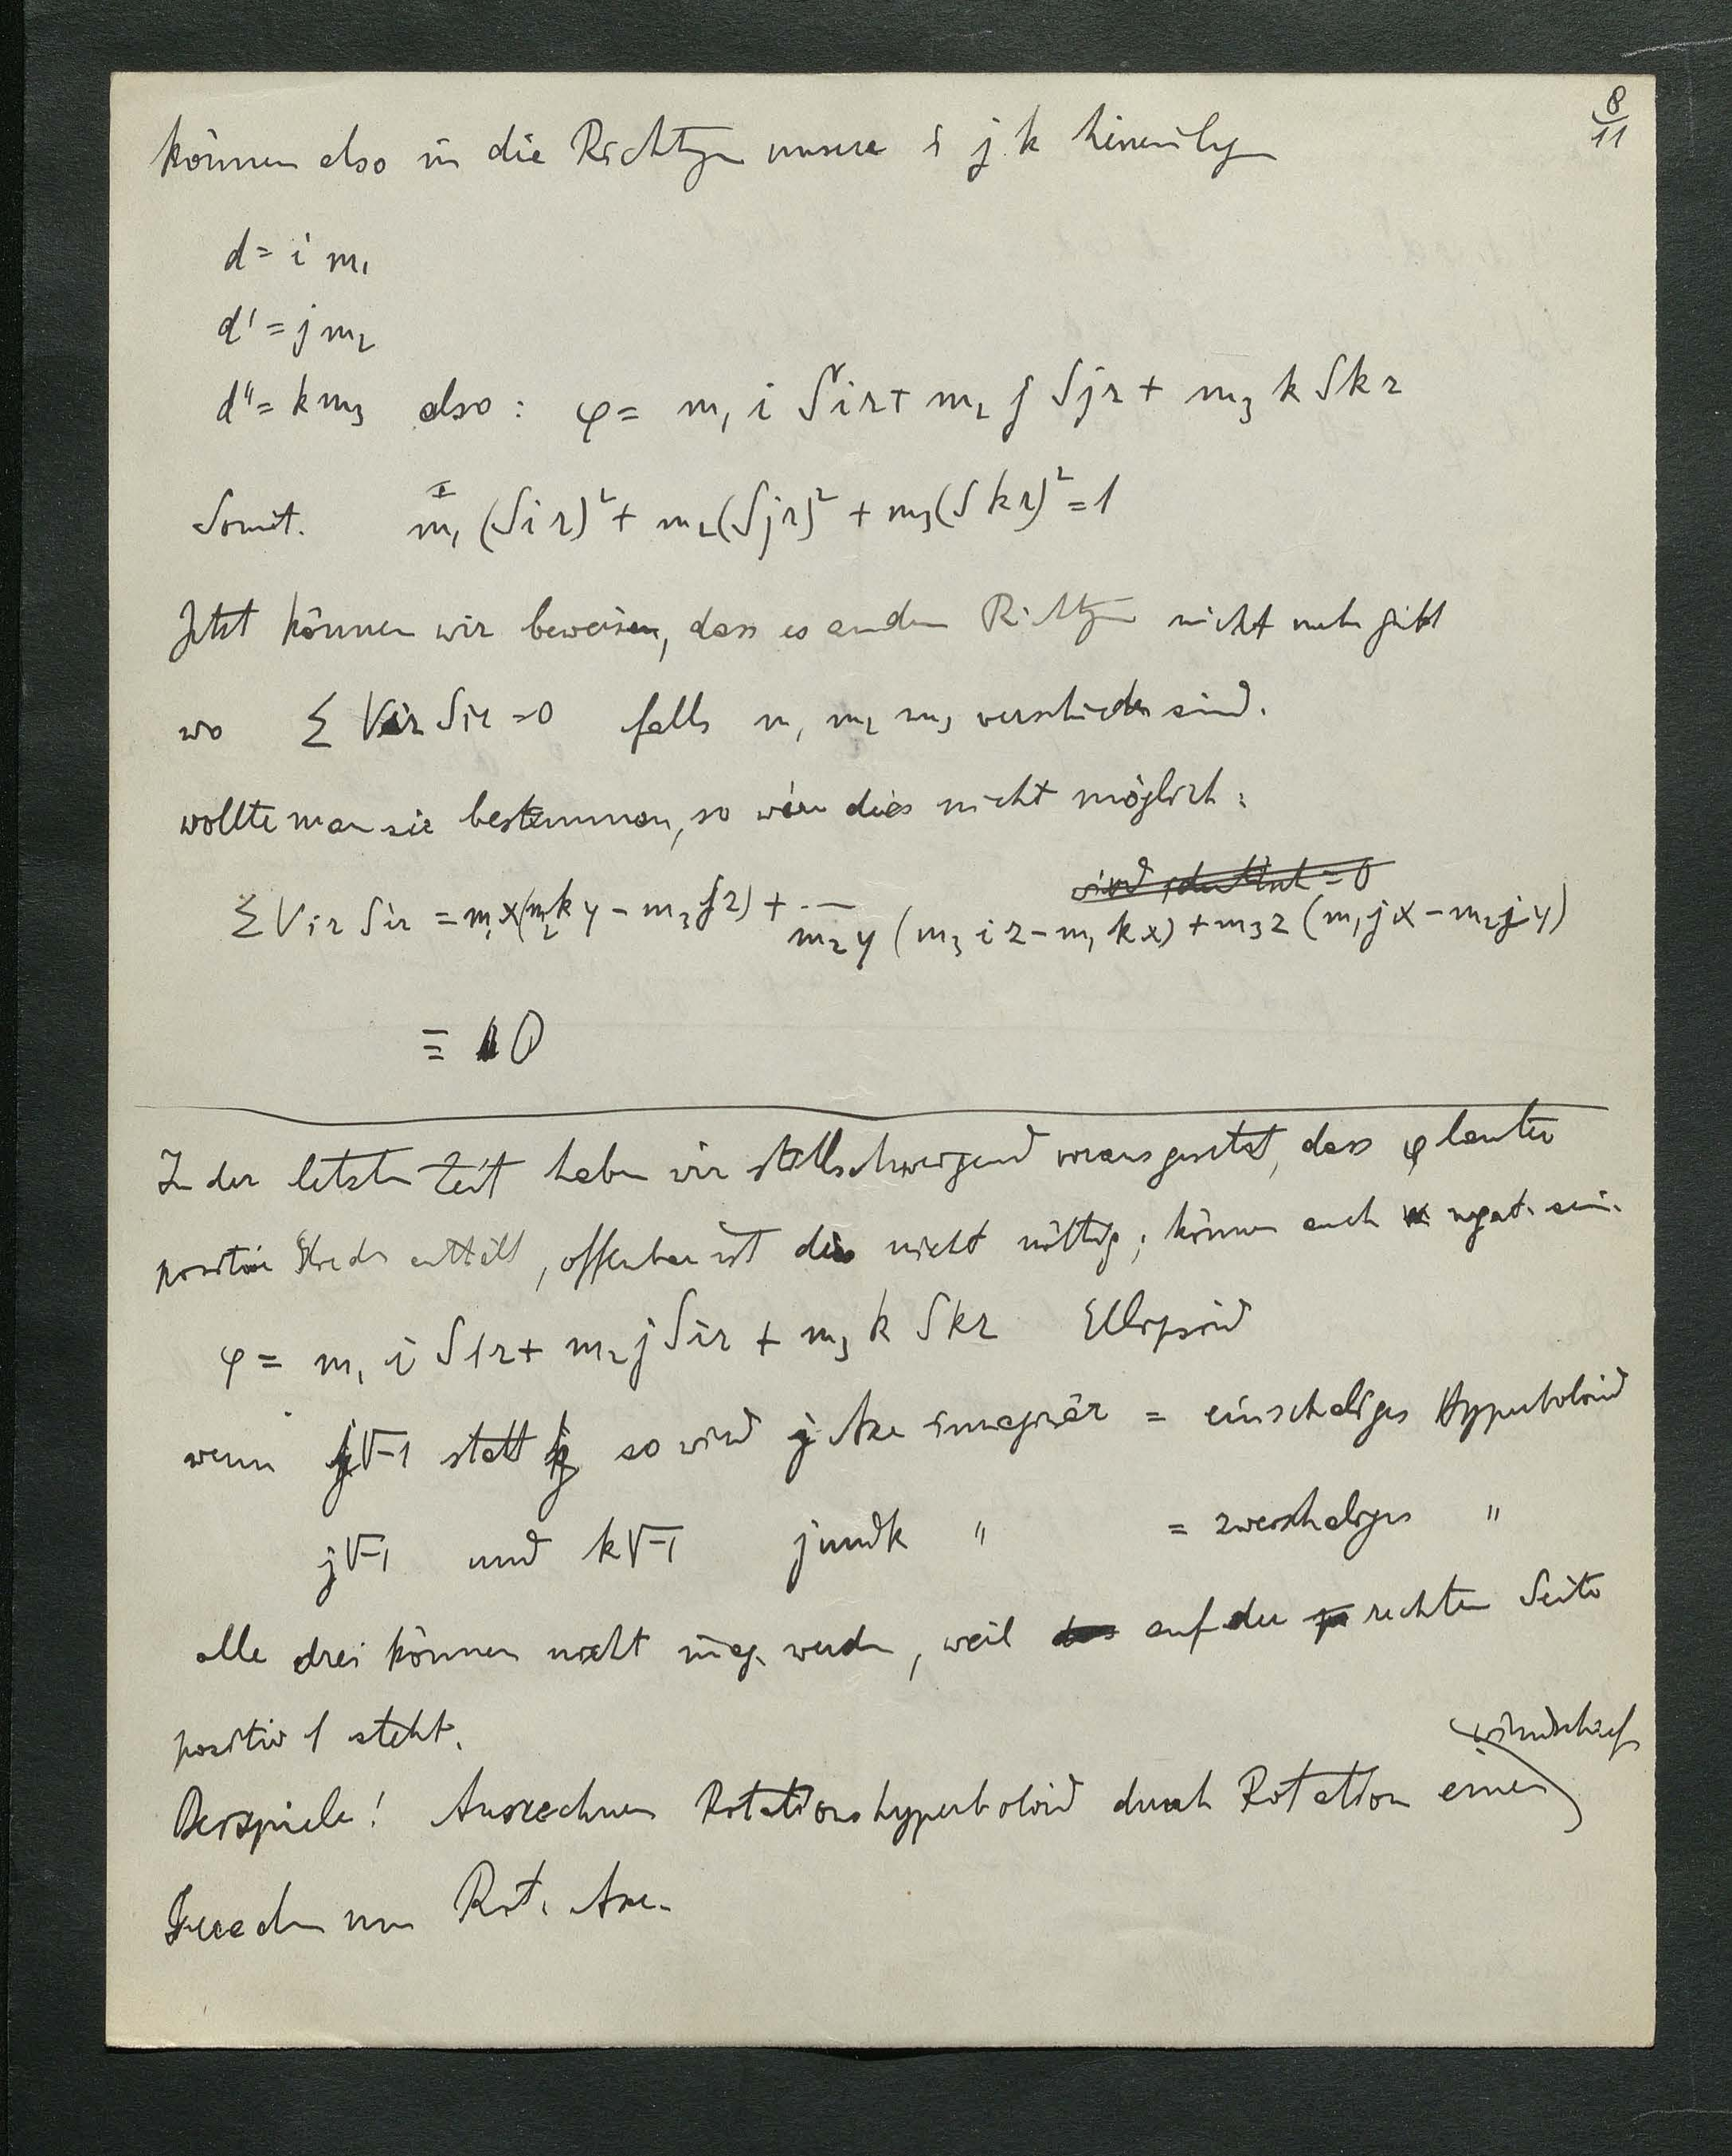 8/11
können also in die Richtgn unsere i j k hineinlegn
d = i m₁
d' = j m₂
d'' = k m₃ also : φ = m₁ i Sir + m₂ j Sjr + m₃ k Skr
Somit. m₁ (Sir)² + m₂ (Sjr)² + m₃ (Skr)² = 1
Jetzt können wir beweisen, dass es andern Richtgn nicht mehr gibt
wo Σ Vir Sir = 0 falls m₁ m₂ m₃ verschieden sind.
wollte man sie bestimmen, so wäre dies nicht möglich:
Σ Vir Sir = m₁x(m₂ky - m₃jz) + ...
m₂y (m₃iz - m₁kx) + m₃z (m₁jx - m₂iy)
≡ 0
In der letzten Zeit haben wir stillschweigend vorausgesetzt, dass φ lauter
positive Glieder enthält, offenbar ist dies nicht nöttig; können auch negat. sein.
φ = m₁ i Sir + m₂ j Sir + m₃ k Skr Ellipsoid
wenn j√-1 statt j so wird j Axe imaginär = einschaliges Hyperboloid
j√-1 und k√-1 j und k " = zweischaliges "
alle drei können nicht imag. werden, weil auf der rechten Seite
positiv 1 steht.
windschief
Beispiele! Ausrechnen Rotationshyperboloid durch Rotation einer
Geraden um Rot. Axe.